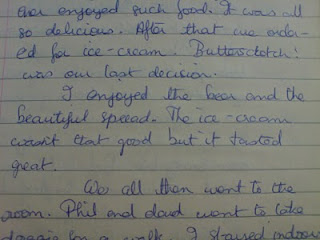 ever enjoyed such food. It was all
so delicious. After that we order-
ed for ice-cream. Butterscotch!
was our last decision.
I enjoyed the beer and the
beautiful spread. The ice-cream
wasn't that good but it tasted
great.
We all then went to the
room. Phil and david went to take
doggie for a walk. I stayed indoors